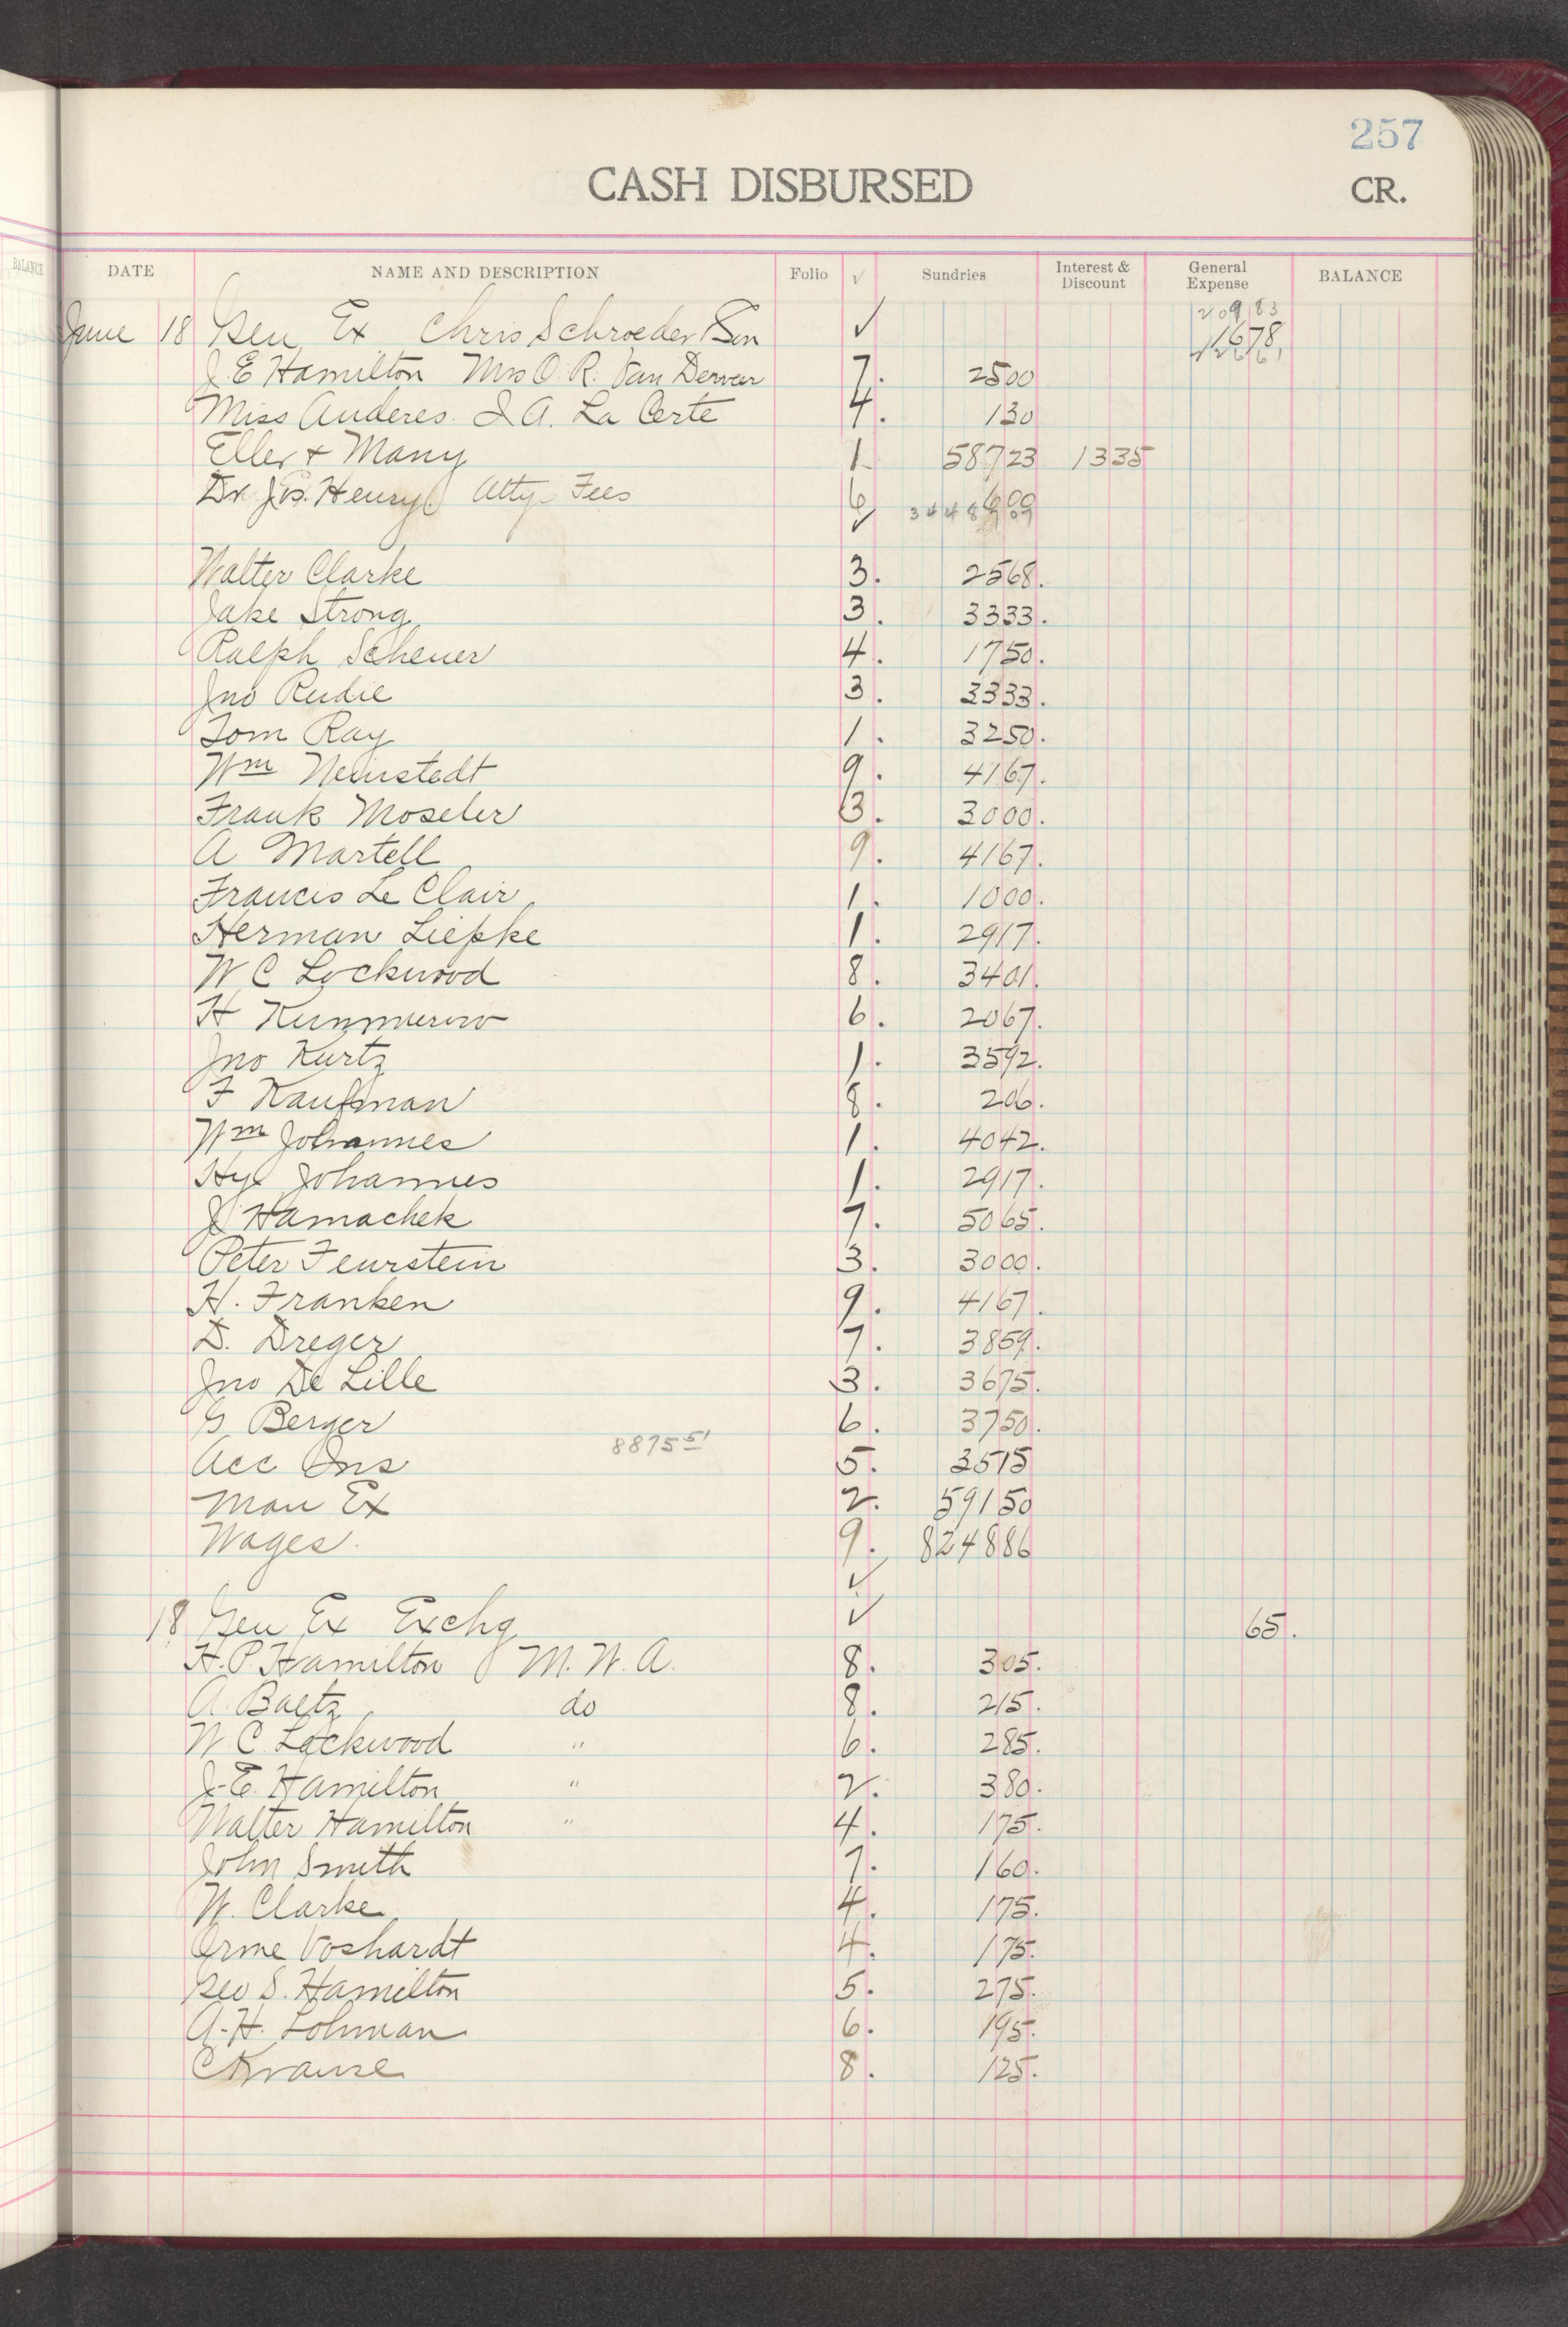 257
CASH DISBURSED CR.
BALANCE
DATE NAME AND DESCRIPTION Folio √ Sundries Interest & Discount General Expense BALANCE
209 83
June 18 Gen Ex Chris Schroeder Son ✓ 1678
J. E Hamilton Mrs O. R. Van Derveer 7. 2500
Miss Anderes. I A. La Certe 4. 130
Eller & Many 1. 58723 1335
Dr Jos. Henry Atty Fees 6 600
✓ 3448
Walter Clarke 3. 2568.
Jake Strong 3. 3333.
Ralph Scheuer 4. 1750.
Jno Rudie 3. 3333.
Tom Ray 1. 3250.
Wm Neinstedt 9. 4167.
Frank Moseler 3. 3000.
A Martell 9. 4167.
Francis Le Clair 1. 1000.
Herman Liepke 1. 2917.
W C Lockwood 8. 3401.
H Kummerow 6. 2067.
Jno Kurtz 1. 3592.
F Kaufman 8. 206.
Wm Johannes 1. 4042.
Hy Johannes 1. 2917.
J Hamachek 7. 5065.
Peter Feurstein 3. 3000.
H. Franken 9. 4167.
D. Dreger 7. 3859.
Jno De Lille 3. 3675.
G Berger 6. 3750.
8875 51
Acc Ins 5. 3515
Man Ex 2. 59150
Wages. 9. 824886
✓
18 Gen Ex Exchg ✓ 65.
H. P. Hamilton M. W. A. 8. 305.
A. Baetz do 8. 215.
W. C. Lockwood " 6. 285.
J. E. Hamilton " 2. 380.
Walter Hamilton " 4. 175.
John Smith 7. 160.
W. Clarke 4. 175.
Orme Voshardt 4. 175.
Geo S. Hamilton 5. 275.
A. H. Lohman 6. 195.
C Krause 8. 125.